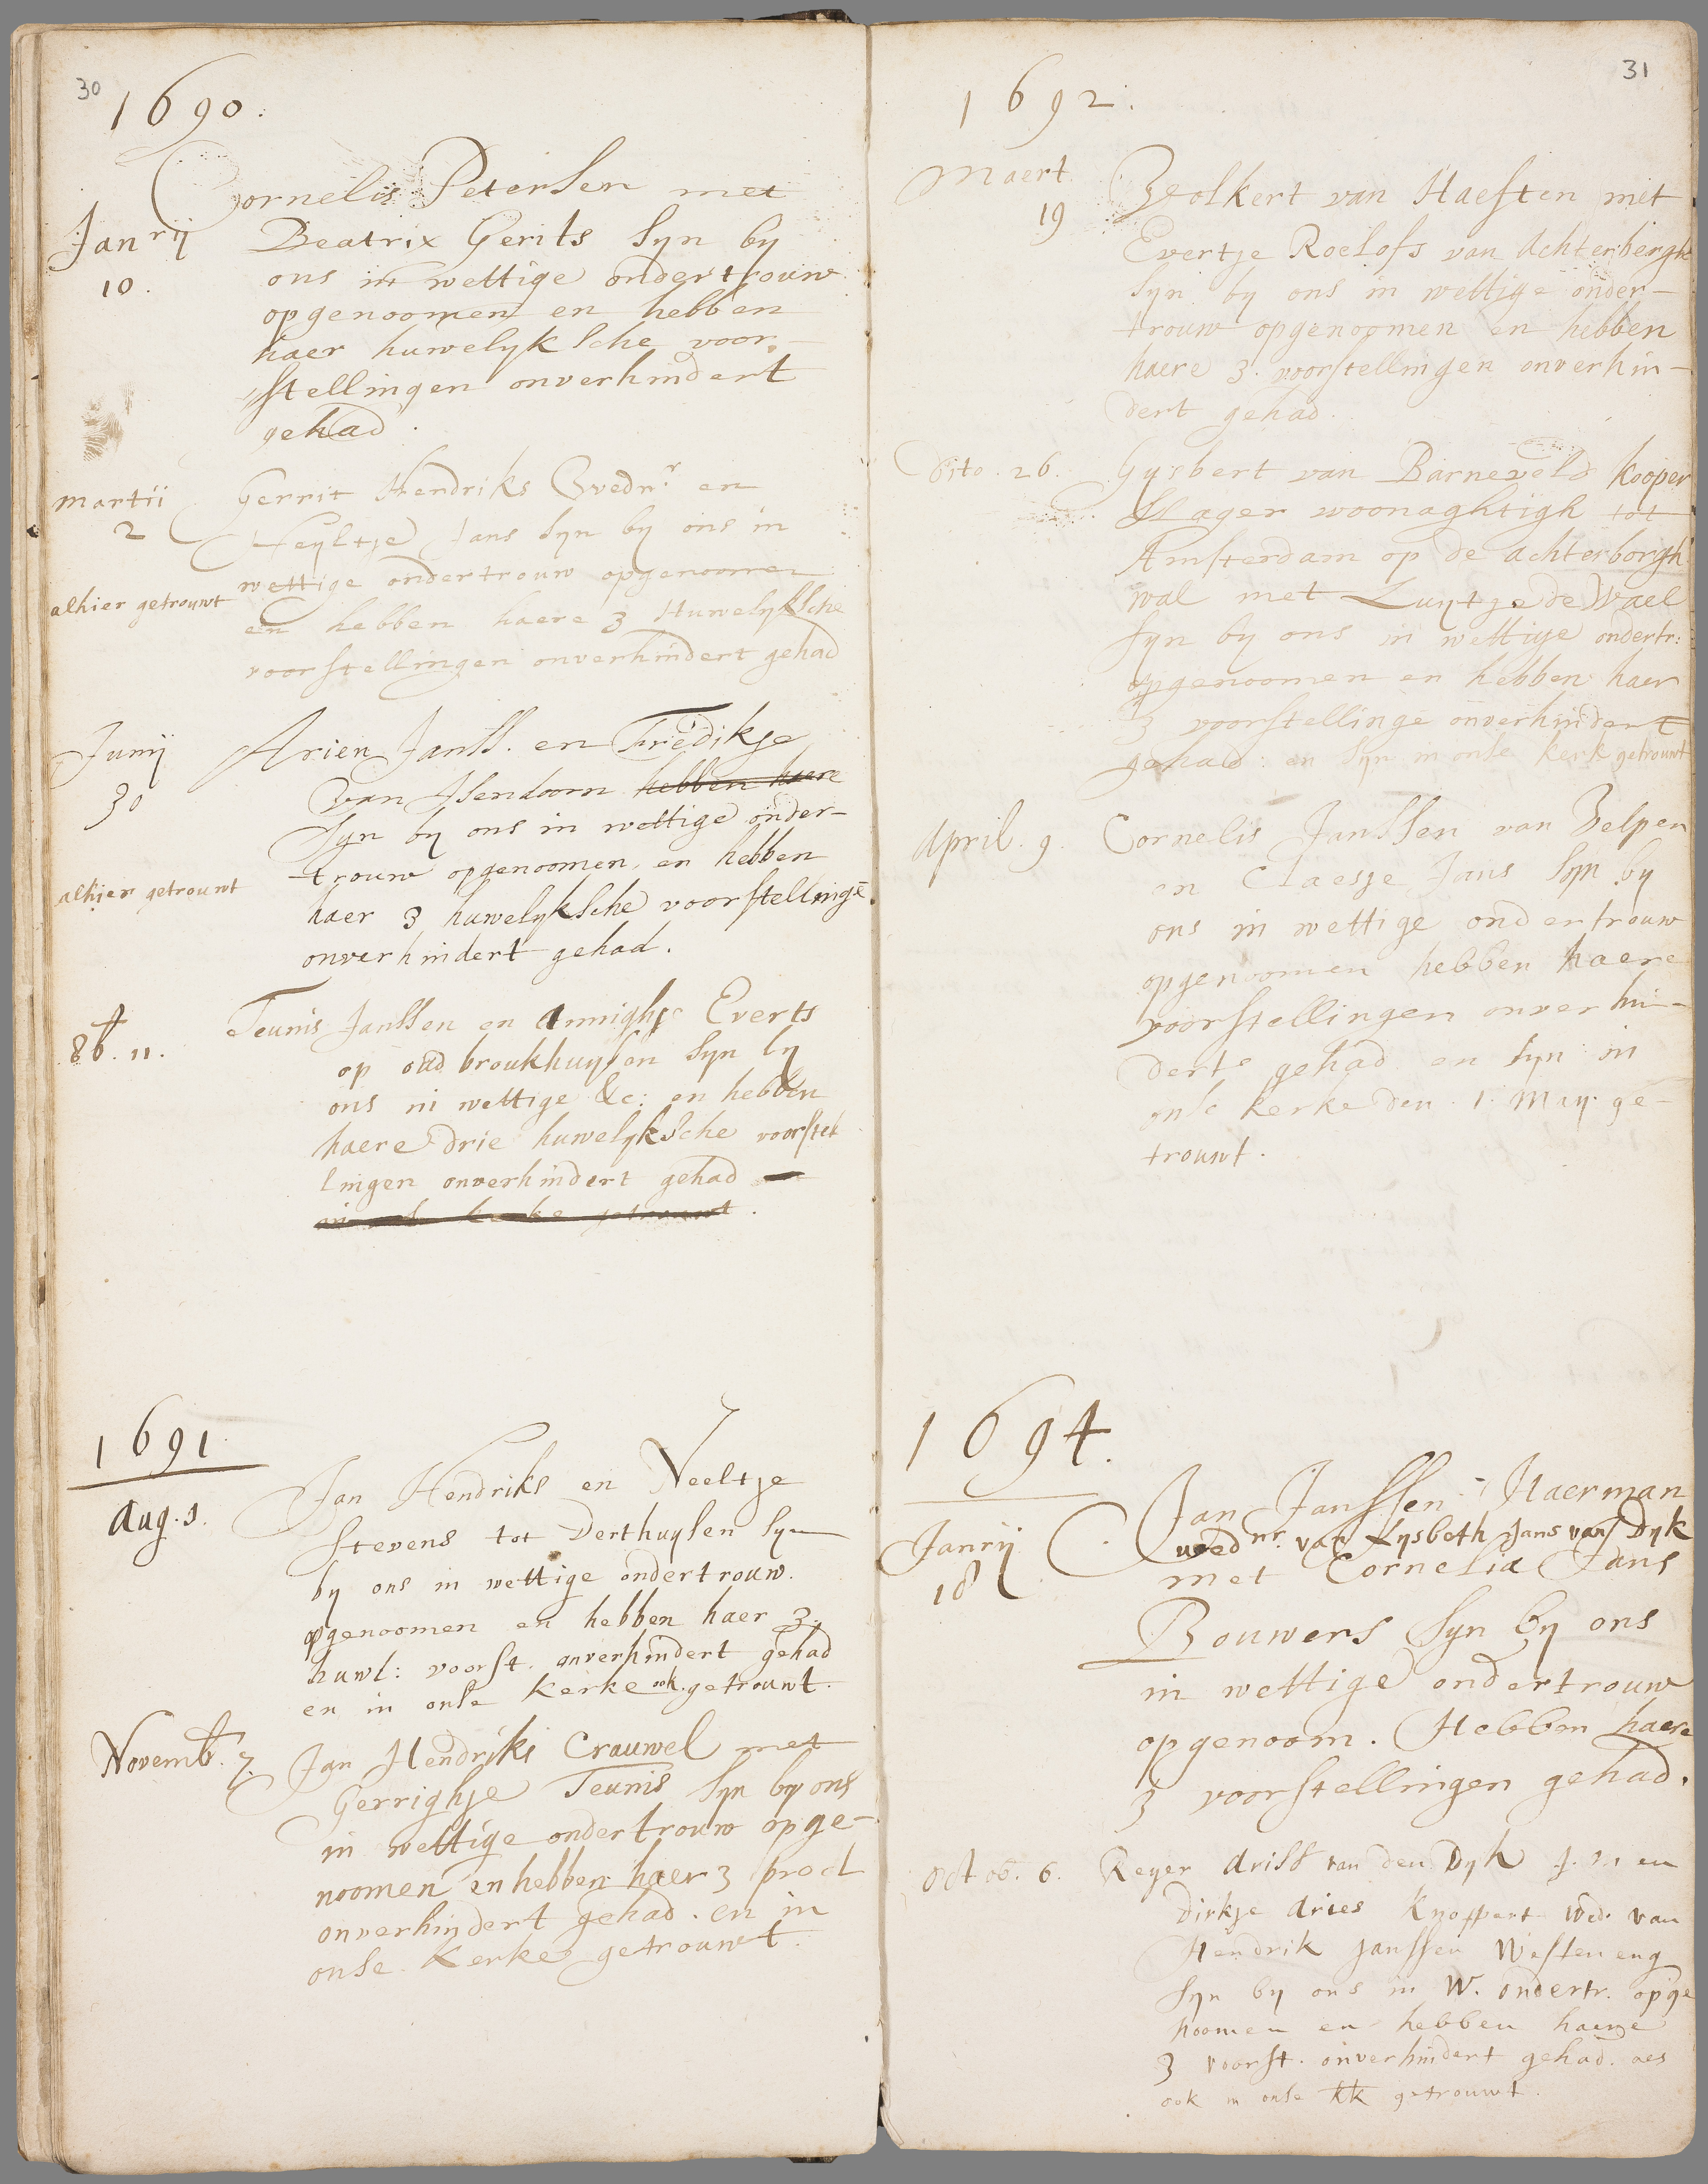 30
1690.
Cornelis Petersen met
Janrij
10.
Beatrix Gerits syn by
ons in wettige ondertrouw
opgenoomen en hebben
haer huwelyksche voor-
stellingen onverhindert
gehad.
Martii
2
Gerrit Hendriks Wednr en
Heyltje Jans syn by ons in
wettige ondertrouw opgenoomen
alhier getrouwt
en hebben haere 3 Huwelyksche
voorstellingen onverhindert gehad
Junij
30
Arien Janss. en Fredikje
van Isendoorn hebben haere
syn by ons in wettige onder-
trouw opgenoomen en hebben
alhier getrouwt
haer 3 huwelyksche voorstellinge
onverhindert gehad.
8b. 11.
Teunis Janssen en Annighje Everts
op oud broukhuysen syn by
ons in wettige &c: en hebben
haere drie huwelyksche voorstel
lingen onverhindert gehad
1691
Aug. 1.
Jan Hendriks en Neeltje
Stevens tot Derthuysen syn
by ons in wettige ondertrouw.
opgenoomen en hebben haer 3.
huwl: voorst. onverhindert gehad
en in onse kerke ook getrouwt.
Novemb. 7.
Jan Hendriks Crauwel met
Gerrighje Teunis syn by ons
in wettige ondertrouw opge-
noomen en hebben haer 3 procl
onverhindert gehad. en in
onse kerke getrouwt.
31
1692.
Maert
19
Volkert van Haeften met
Evertje Roelofs van Achterbergh
syn by ons in wettige onder-
trouw opgenoomen en hebben
haere 3. voorstellingen onverhin-
dert gehad.
Dito. 26.
Gysbert van Barneveld kooper
slager woonaghtigh tot
Amsterdam op de achterborgh
wal met Luytje de Wael
syn by ons in wettige ondertr:
opgenoomen en hebben haer
3 voorstellinge onverhindert
gehad: en syn in onse kerk getrouwt
April. 9.
Cornelis Janssen van Velpen
en Claesje Jans syn by
ons in wettige ondertrouw
opgenoomen hebben haere
voorstellingen onverhin-
dert gehad en syn in
onse kerke den 1. May. ge-
trouwt.
1694.
Janrij
18
Jan Janssen Haerman
wednr. van Lysbeth Jans van Dyk
met Cornelia Jans
Bouwers syn by ons
in wettige ondertrouw
opgenoom. Hebben haere
3 voorstellingen gehad.
Octob. 6.
Reyer Ariss van den Dyk J. M en
Dirkje Aries Knoppert wed. van
Hendrik Janssen Westeneng
syn by ons in W. ondertr. opge
noomen en hebben haere
3 voorst. onverhindert gehad. aes
ook in onse kk getrouwt.